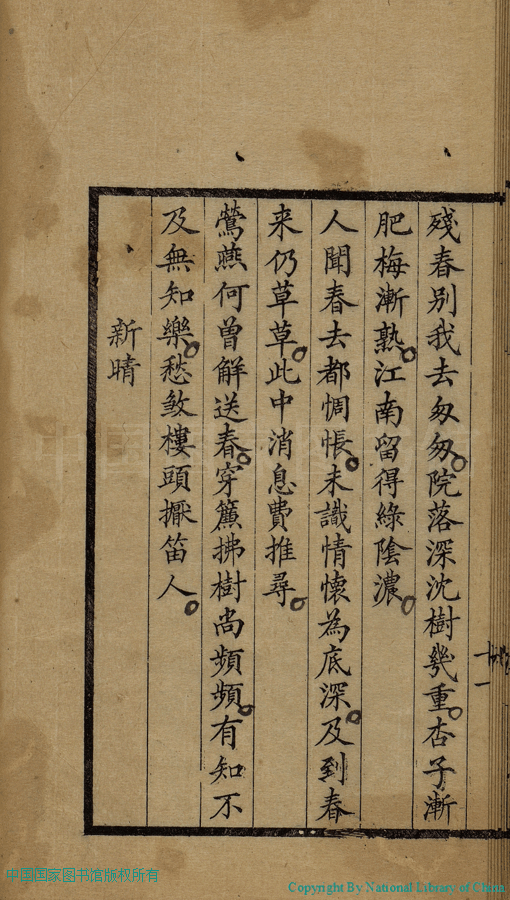 殘春別我去匆匆院落深沈樹幾重杏子漸
肥梅漸熟江南留得綠陰濃
人聞春去都惆悵未識情懷為底深及到春
来仍草草此中消息費推尋
鶯燕何曾解送春穿簾拂樹尚頻頻有知不
及無知樂愁煞樓頭擫笛人
新晴
中国国家图书馆版权所有
Copyright By National Library of China